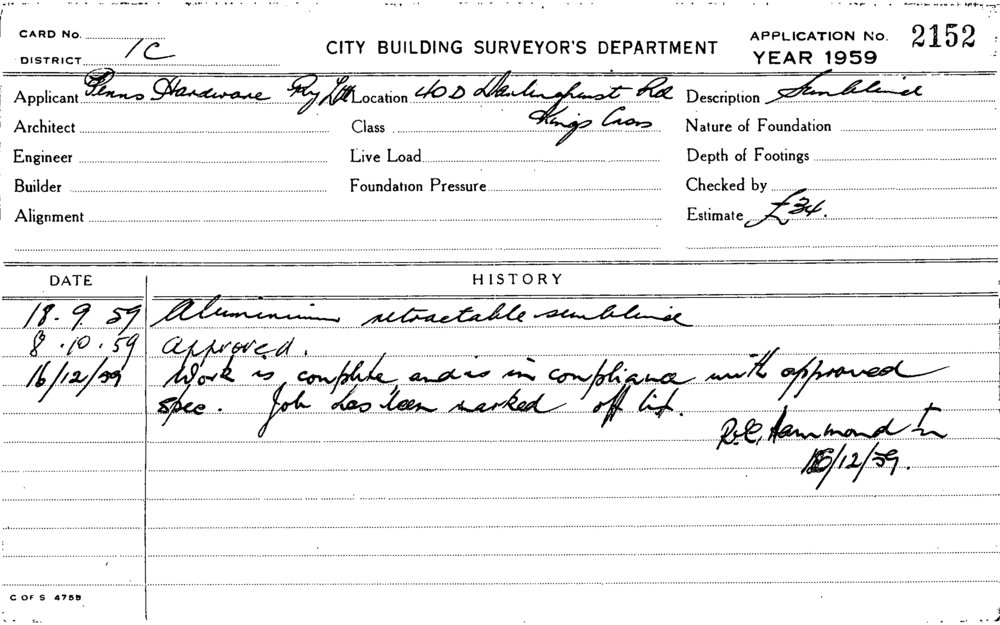 CARD No.
DISTRICT 1C
CITY BUILDING SURVEYOR'S DEPARTMENT
APPLICATION No. 2152
YEAR 1959
Applicant Penns Hardware Pty Ltd Location 40D Darlinghurst Rd Description Sunblind
Kings Cross
Architect Class Nature of Foundation
Engineer Live Load Depth of Footings
Builder Foundation Pressure Checked by
Alignment Estimate £34.
DATE HISTORY
18.9.59 Aluminium retractable sunblind
8.10.59 Approved.
16/12/59 Work is complete and is in compliance with approved
spec. Job has been marked off list.
R.E. Hammond
16/12/59.
C OF S 4759